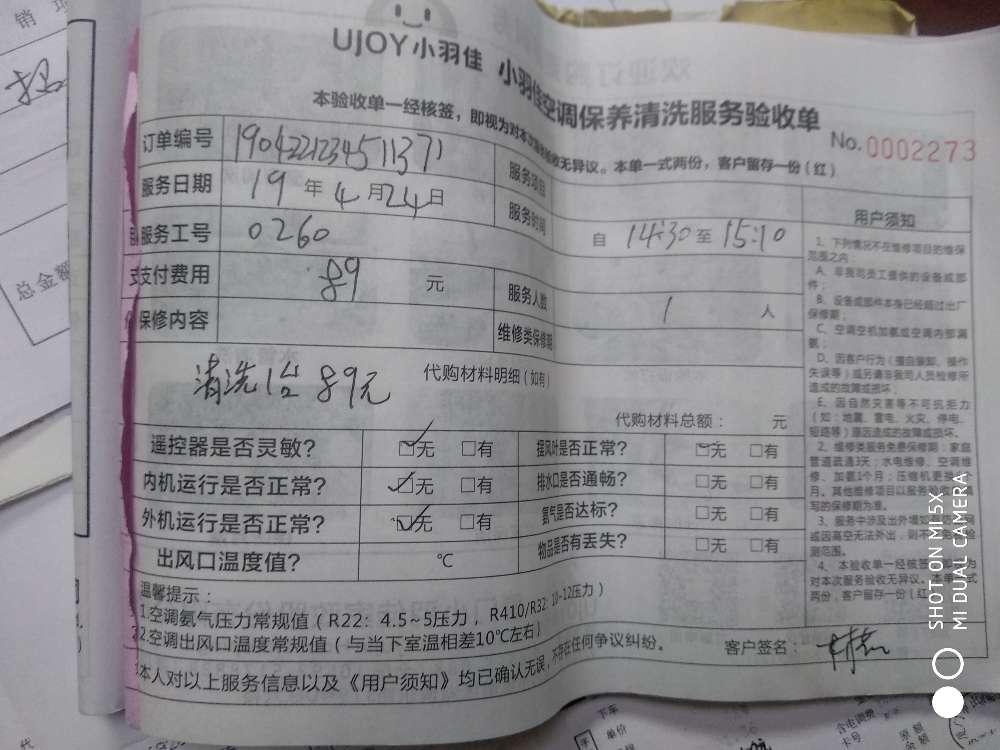 UJOY小羽佳 小羽佳空调保养清洗服务验收单
本验收单一经核签，即视为对本次服务验收无异议。本单一式两份，客户留存一份（红）
No.0002273
订单编号 19042212345 11371
服务项目
服务日期 19年4月24日
服务时间 自 14:30 至 15:10
服务工号 0260
支付费用 89 元
服务人数 1 人
保修内容
维修类保修期
清洗1台 89元
代购材料明细（如有）
代购材料总额： 元
遥控器是否灵敏？ ☑无 □有
摆风叶是否正常？ ☑无 □有
内机运行是否正常？ ☑无 □有
排水口是否通畅？ □无 □有
外机运行是否正常？ ☑无 □有
氨气是否达标？ □无 □有
出风口温度值？ ℃
物品是否有丢失？ □无 □有
温馨提示：
1.空调氨气压力常规值（R22：4.5~5压力，R410/R32: 10-12压力）
2.空调出风口温度常规值（与当下室温相差10℃左右）
本人对以上服务信息以及《用户须知》均已确认无误，不存在任何争议纠纷。
客户签名：
用户须知
1、下列情况不在维修项目的维保
范围之内：
A、非我司员工提供的设备或部
件；
B、设备或部件本身已经超过出厂
保修期；
C、空调空机加氨或空调内部漏
氨；
D、因客户行为（擅自装卸、操作
失误等）或另请非我司人员检修所
造成的故障或损坏；
E、因自然灾害等不可抗拒力
（如：地震、雷电、火灾、停电、
短路等）原因造成的故障或损坏。
2、维修类服务免费保修期：家庭
管道疏通3天；水电维修、空调维
修、加氨1个月；压缩机更换
月。其他维修项目以服务验收
写的保修期为准。
3、服务中涉及出外墙
或因高空无法外出，则不
测范围。
4、本验收单一经核签
对本次服务验收无异议。本单一式
两份，客户留存一份（红
总金额
销 项
代
下车
单价
卡号
SHOT ON MI 5X
MI DUAL CAMERA